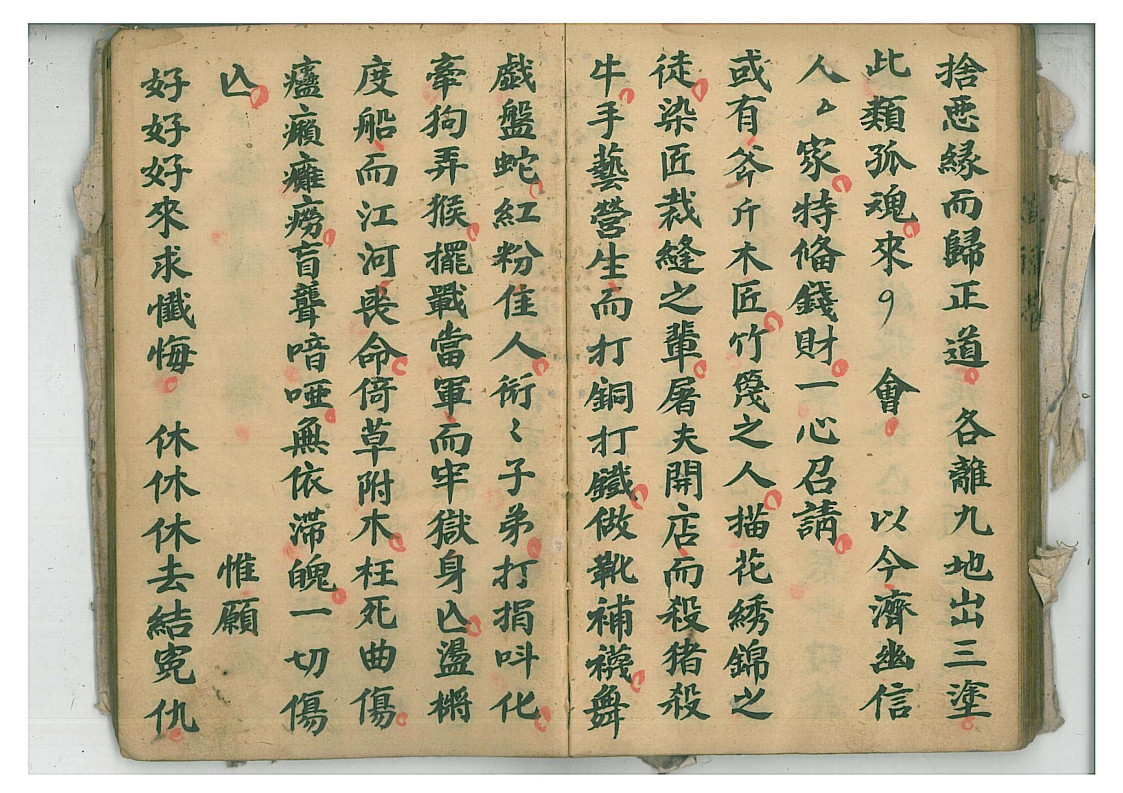 捨惡緣而歸正道　各離九地出三塗
此類孤魂來〻會　以今濟幽信
人〻家特俻錢財一心召請
或有斧斤木匠竹篾之人描花綉錦之
徒染匠裁縫之輩屠夫開店而殺猪殺
牛手藝營生而打銅打鐵做靴補襪舞
戲盤蛇紅粉佳人衒〻子弟打捐叫化
牽狗弄猴擺戰當軍而牢獄身亾盪槳
度船而江河喪命倚草附木枉死曲傷
癔癩癱癆盲聾喑啞無依滯魄一切傷
亾　惟願
好好好來求懺悔　休休休去結寃仇